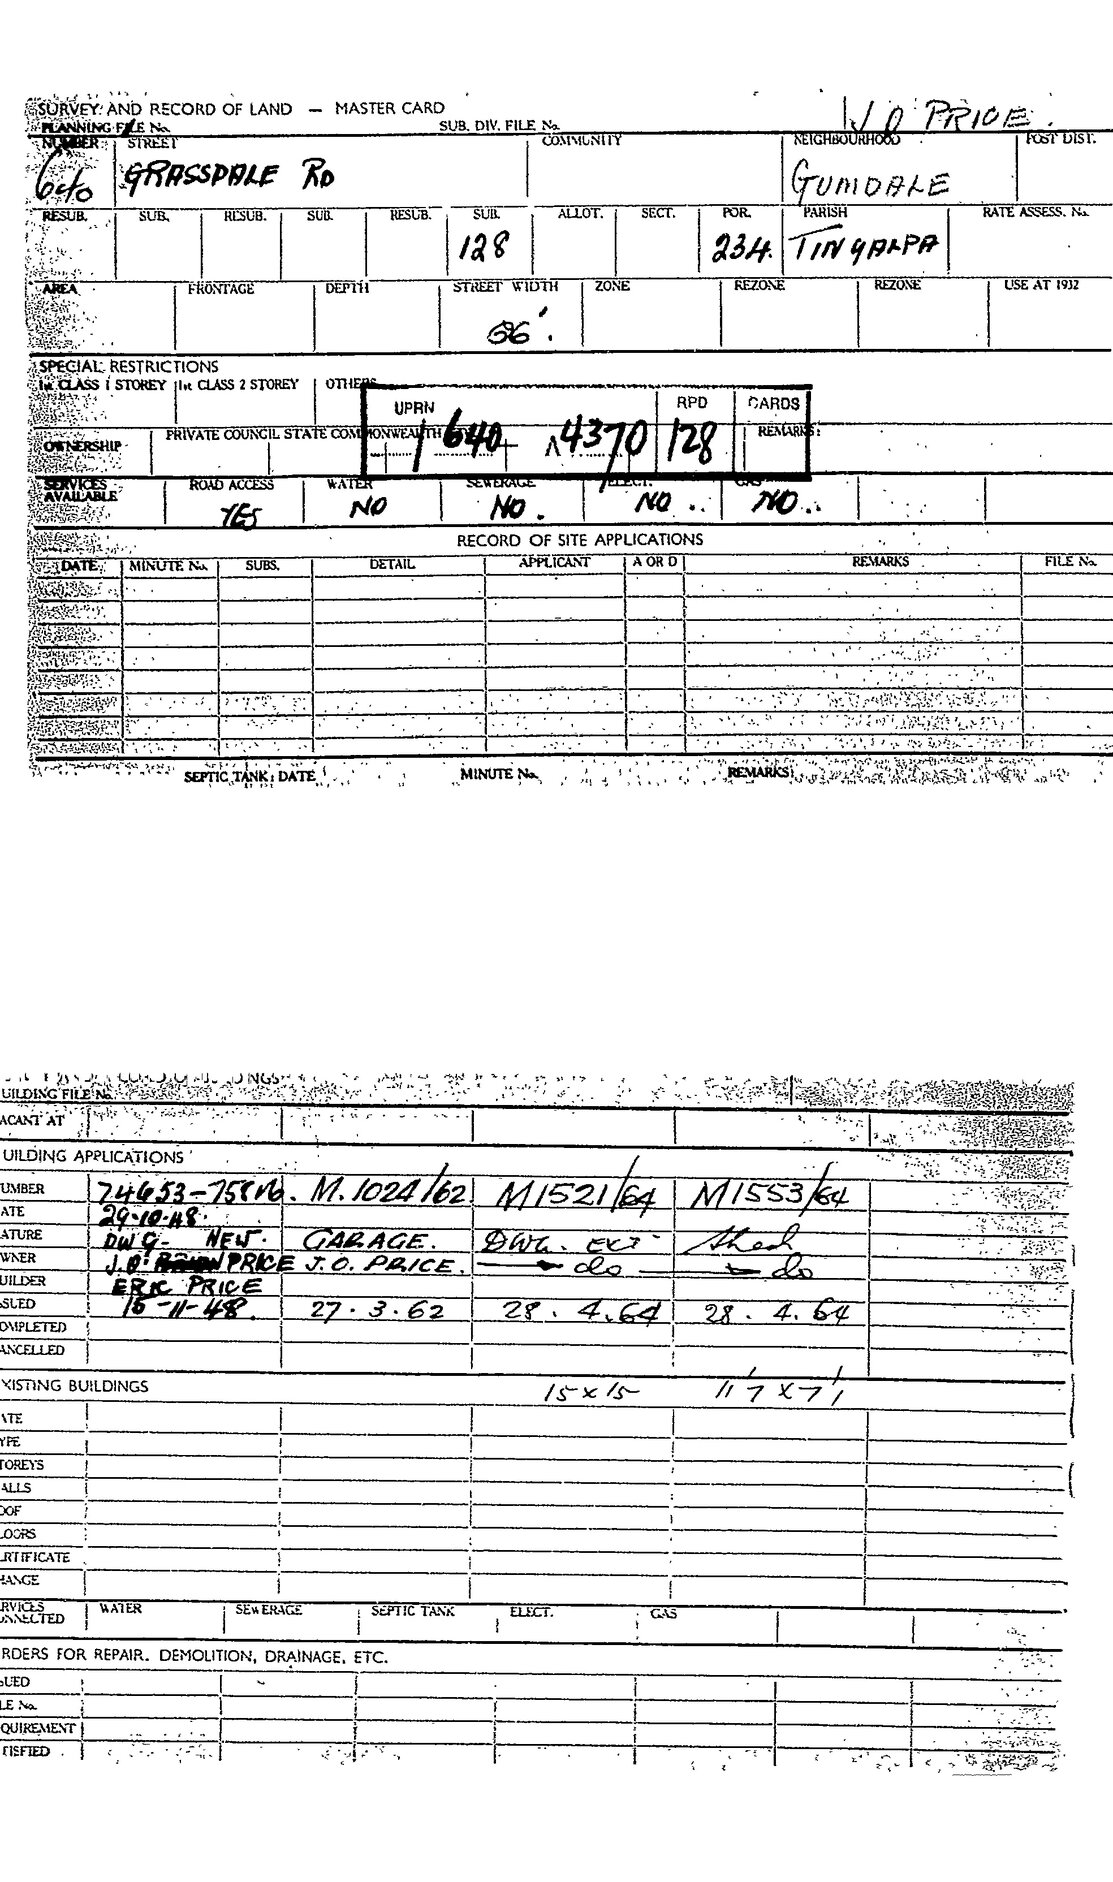 SURVEY AND RECORD OF LAND — MASTER CARD
J O PRICE.
PLANNING FILE No. SUB. DIV. FILE No.
NUMBER STREET COMMUNITY NEIGHBOURHOOD POST DIST.
640 GRASSDALE RD GUMDALE
RESUB. SUB. RESUB. SUB. RESUB. SUB. ALLOT. SECT. POR. PARISH RATE ASSESS. No.
128 234. TINGALPA
AREA FRONTAGE DEPTH STREET WIDTH ZONE REZONE REZONE USE AT 1932
66'.
SPECIAL RESTRICTIONS
1st CLASS 1 STOREY 1st CLASS 2 STOREY OTHERS
UPRN RPD CARDS
OWNERSHIP PRIVATE COUNCIL STATE COMMONWEALTH REMARKS:
640 4370 128
SERVICES AVAILABLE ROAD ACCESS WATER SEWERAGE ELECT. GAS
YES NO NO. NO.. NO..
RECORD OF SITE APPLICATIONS
DATE MINUTE No. SUBS. DETAIL APPLICANT A OR D REMARKS FILE No.
SEPTIC TANK: DATE MINUTE No. REMARKS:
UILDING FILE No.
ACANT AT
UILDING APPLICATIONS
UMBER M.1024/62. M1521/64 M1553/64
ATE 29.10.48.
ATURE DWG- NEW. GARAGE. DWG. EXT Shed
WNER J.O. PRICE J.O. PRICE. — do — do
UILDER ERIC PRICE
SUED 15-11-48. 27.3.62 28.4.64 28.4.64
OMPLETED
ANCELLED
XISTING BUILDINGS 15 x 15 11'7 x 7'1
ATE
YPE
TOREYS
ALLS
OOF
LOORS
ERTIFICATE
HANGE
RVICES ONNECTED WATER SEWERAGE SEPTIC TANK ELECT. GAS
RDERS FOR REPAIR. DEMOLITION, DRAINAGE, ETC.
SUED
LE No.
QUIREMENT
TISFIED